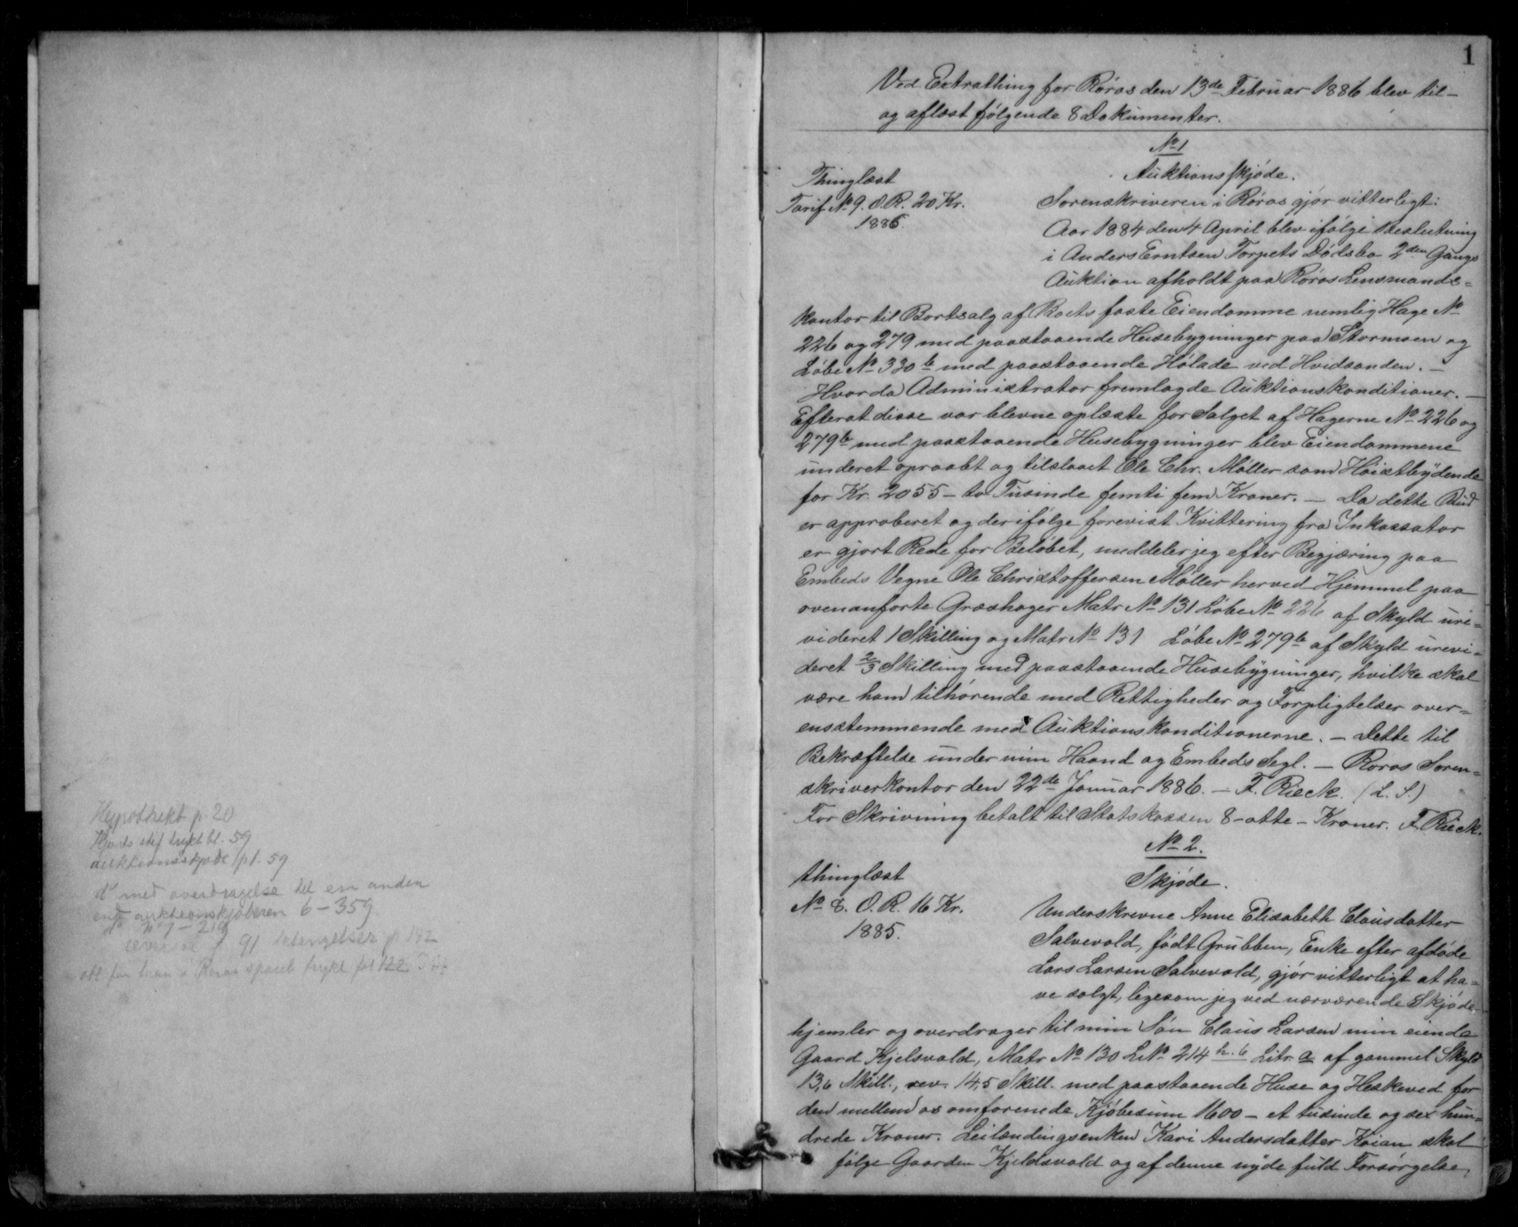 Hypothekt p. 20
Auktionsskjøde pt. 59
do med overdragelse til en anden
end auktionskjøberen 6 - 359
1
Ved Extrathing for Røros den 13de Februar 1886 blev til-
og aflæst følgende 8 Dokumenter.
No 1
Auktionsskjøde.
Thinglæst
Tarif No 9. O.R. 20 Kr.
1886.
Sorenskriveren i Røros gjør vitterligt:
Aar 1884 den 4 April blev ifølge Beslutning
i Anders Erntsen Torpets Dødsbo 2den Gangs
Auktion afholdt paa Røros Lensmands-
kontor til Bortsalg af Boets faste Eiendomme nemlig Hage No
226 og 279 med paastaaende Husebygninger paa Stormoen og
Løbe No 330 b med paastaaende Hølade ved Hvidsanden. -
Hvorda Administrator fremlagde Auktionskonditioner. -
Efterat disse var blevne oplæste for Salget af Hagerne No 226 og
279 b med paastaaende Husebygninger blev Eiendommene
underet opraabt og tilslaaet Ole Chr. Møller som Høistbydende
for Kr. 2055 - to Tusinde femti fem Kroner. - Da dette Bud
er approberet og der ifølge forevist Kvittering fra Inkassator
er gjort Rede for Beløbet, meddeler jeg efter Begjæring paa
Embeds Vegne Ole Christoffersen Møller herved Hjemmel paa
ovenanførte Græshager Matr No 131 Løbe No 226 af Skyld ure-
videret 1 Skilling og Matr No 131 Løbe No 279 b af Skyld urevi-
deret 2/3 Skilling med paastaaende Husebygninger, hvilke skal
være ham tilhørende med Rettigheder og Forpligtelser over-
ensstemmende med Auktionskonditionerne. - Dette til
Bekræftelse under min Haand og Embeds Segl. - Røros Soren-
skriverkontor den 22de Januar 1886. - F. Rieck. (L. S.)
For Skrivning betalt til Statskassen 8 - otte - Kroner. F. Rieck.
No 2.
Skjøde.
thinglæst
No 8. O.R. 16 Kr.
1885.
Underskrevne Anne Elisabeth Clausdatter
Salvevold, født Grubben, Enke efter afdøde
Lars Larsen Salvevold, gjør vitterligt at ha-
ve solgt, ligesom jeg ved nærværende Skjøde
hjemler og overdrager til min Søn Claus Larsen min eiende
Gaard Kjelsvold, Matr No 130 LNo 214 h. 6 Litr. a af gammel Skyld
13,6 Skill., rev. 14,5 Skill. med paastaaende Huse og Heskeved for
den mellem os omforenede Kjøbesum 1600 - et tusinde og sex hun-
drede Kroner. Leilændingsenken Kari Andersdatter Koian skal
følge Gaarden Kjeldsvold og af denne nyde fuld Forsørgelse,